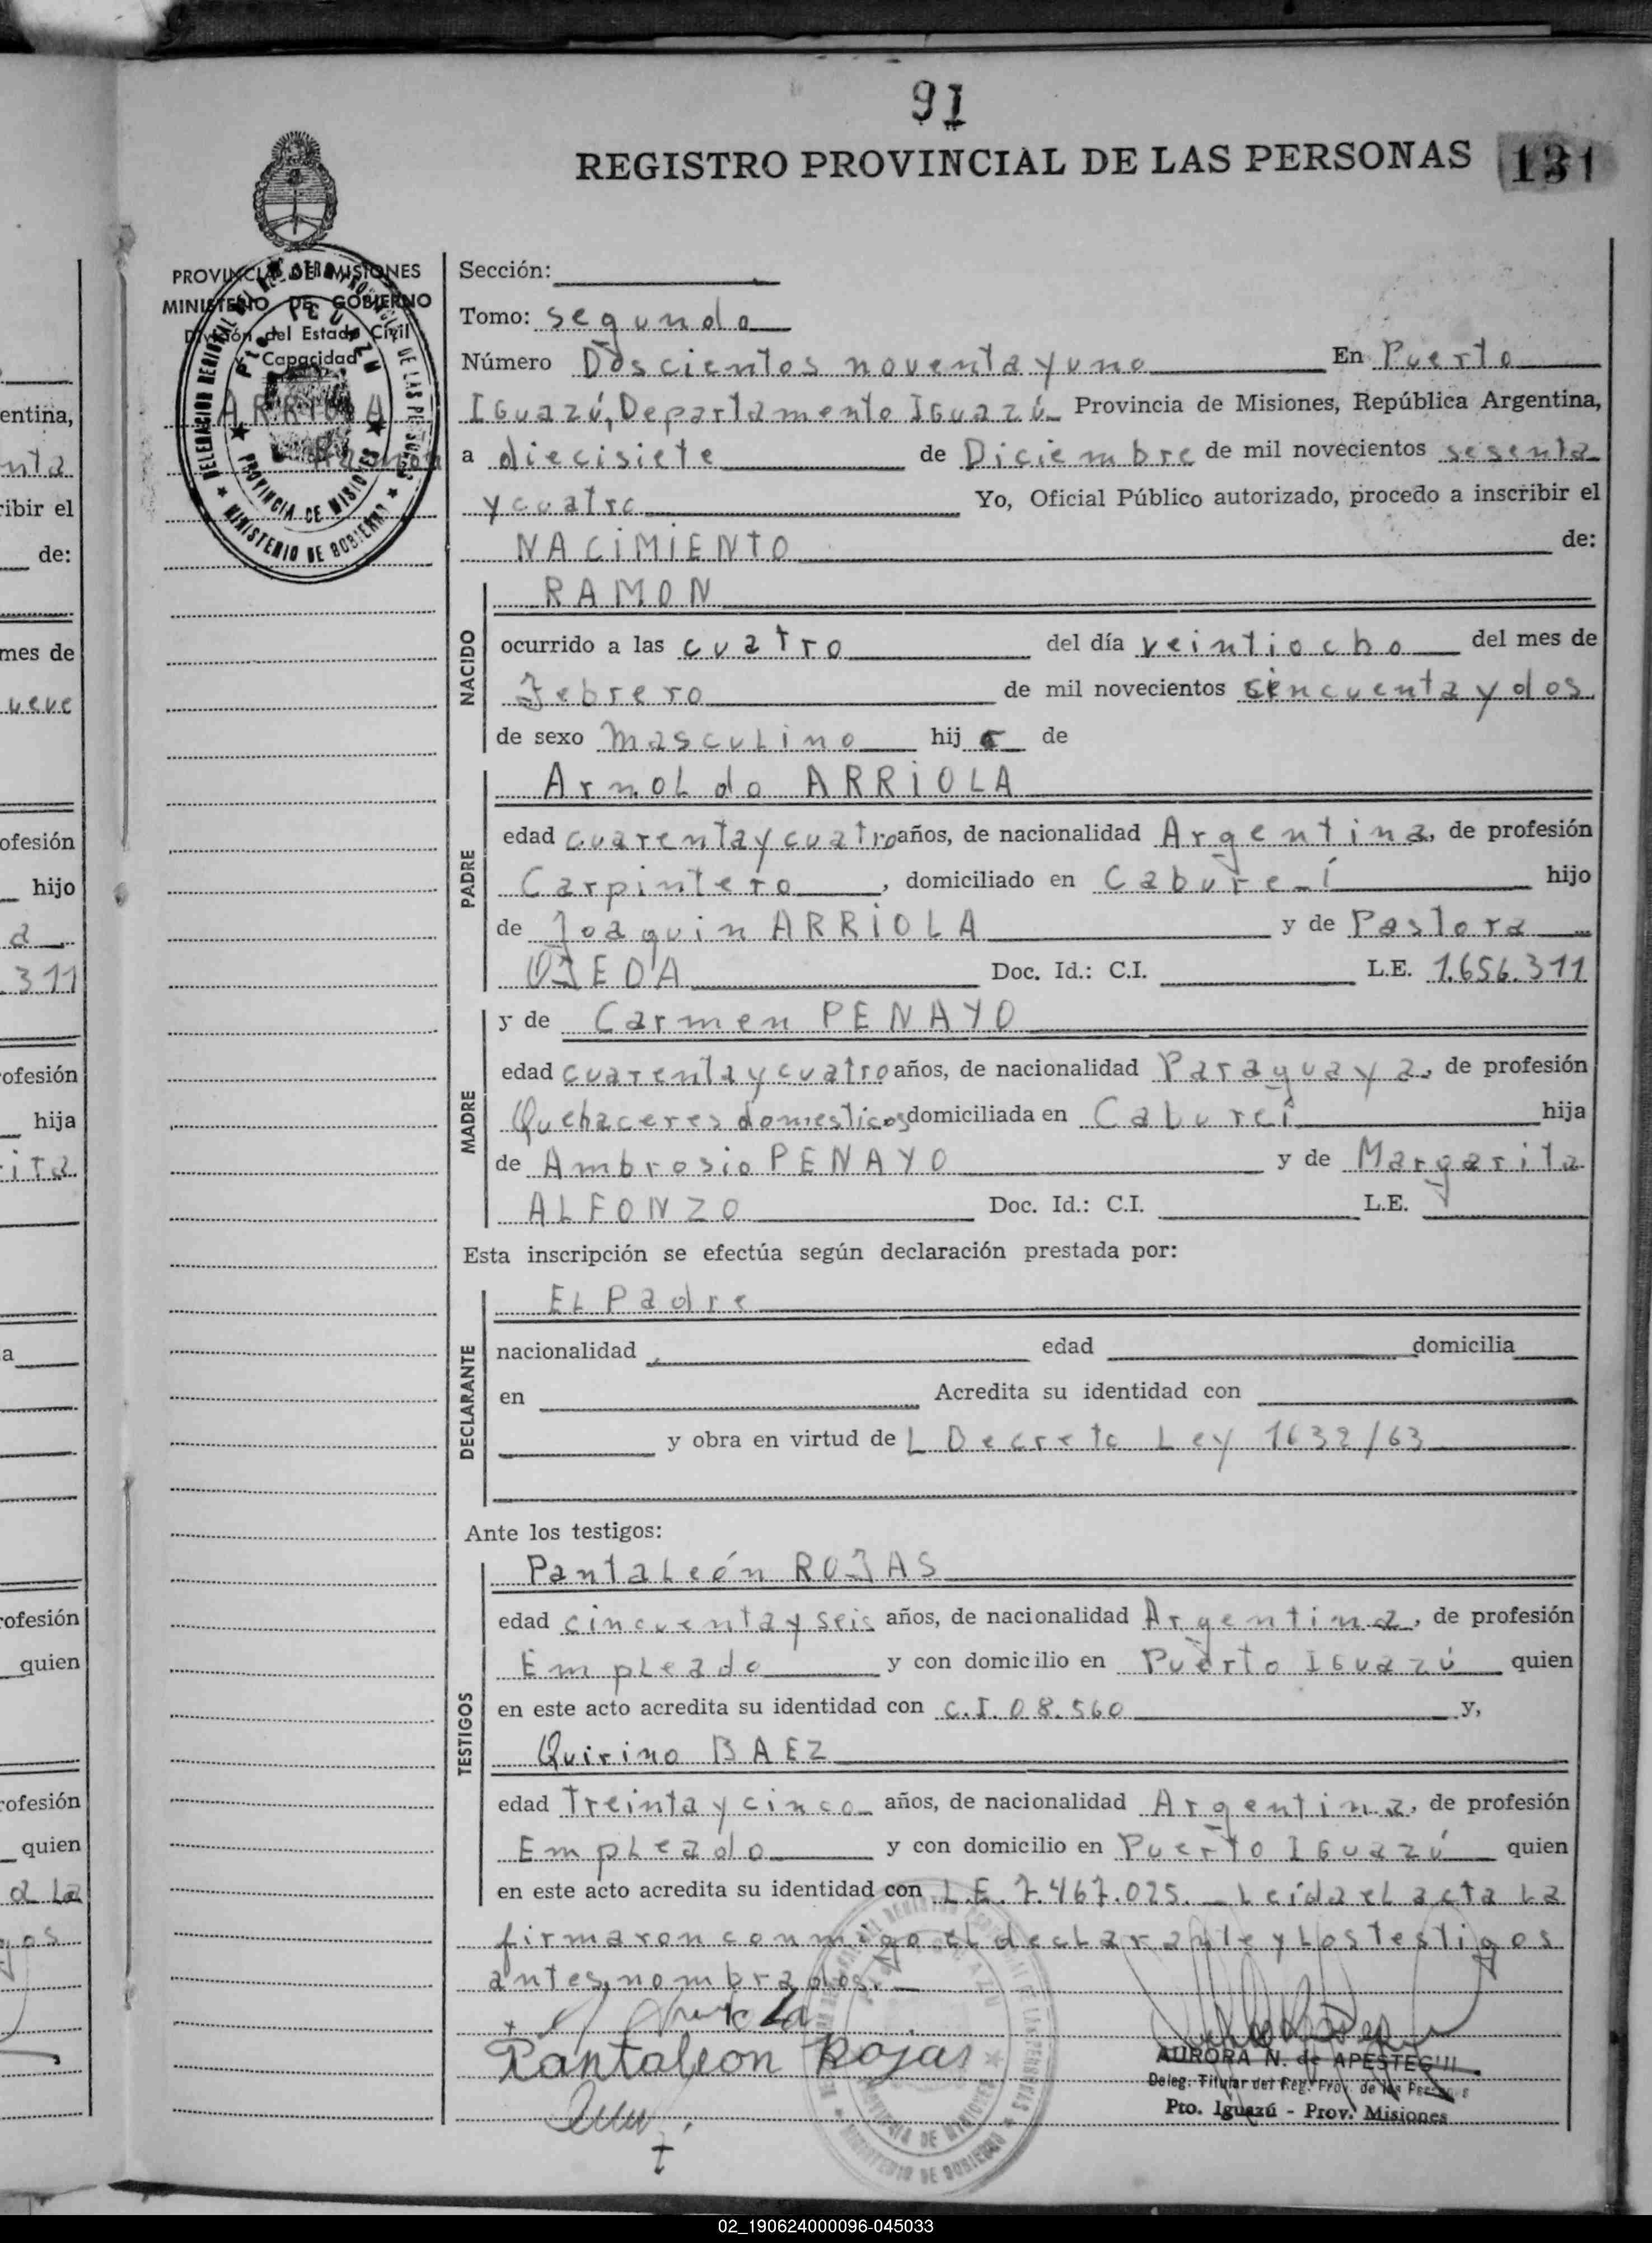 91
REGISTRO PROVINCIAL DE LAS PERSONAS 131
PROVINCIA DE MISIONES
MINISTERIO DE GOBIERNO
División del Estado Civil
y Capacidad
ARRIOLA
Ramón
DELEGACION REGIONAL DEL REGISTRO PROVINCIAL DE LAS PERSONAS
PTO. IGUAZU
PROVINCIA DE MISIONES
MINISTERIO DE GOBIERNO
Sección:
Tomo: segundo
Número Doscientos noventa y uno En Puerto
Iguazú, Departamento Iguazú Provincia de Misiones, República Argentina,
a diecisiete de Diciembre de mil novecientos sesenta
y cuatro Yo, Oficial Público autorizado, procedo a inscribir el
NACIMIENTO de:
NACIDO
RAMON
ocurrido a las cuatro del día veintiocho del mes de
Febrero de mil novecientos cincuenta y dos
de sexo Masculino hijo de
PADRE
Arnoldo ARRIOLA
edad cuarenta y cuatro años, de nacionalidad Argentina, de profesión
Carpintero, domiciliado en Cabure-í hijo
de Joaquin ARRIOLA y de Pastora
OJEDA Doc. Id.: C.I. L.E. 1.656.311
MADRE
y de Carmen PENAYO
edad cuarenta y cuatro años, de nacionalidad Paraguaya, de profesión
Quehaceres domesticos domiciliada en Cabureí hija
de Ambrosio PENAYO y de Margarita
ALFONZO Doc. Id.: C.I. L.E.
Esta inscripción se efectúa según declaración prestada por:
DECLARANTE
El Padre
nacionalidad edad domicilia
en Acredita su identidad con
y obra en virtud del Decreto Ley 1632/63
Ante los testigos:
TESTIGOS
Pantaleón ROJAS
edad cincuenta y seis años, de nacionalidad Argentina, de profesión
Empleado y con domicilio en Puerto Iguazú quien
en este acto acredita su identidad con C.I. 08.560 y,
Quirino BAEZ
edad Treinta y cinco años, de nacionalidad Argentina, de profesión
Empleado y con domicilio en Puerto Iguazú quien
en este acto acredita su identidad con L.E. 7.467.025. Leída el acta la
firmaron conmigo el declarante y los testigos
antes nombrados.
Pantaleon Rojas
AURORA N. de APESTEGUI
Deleg. Titular del Reg. Prov. de las Personas
Pto. Iguazú - Prov. Misiones
02_190624000096-045033